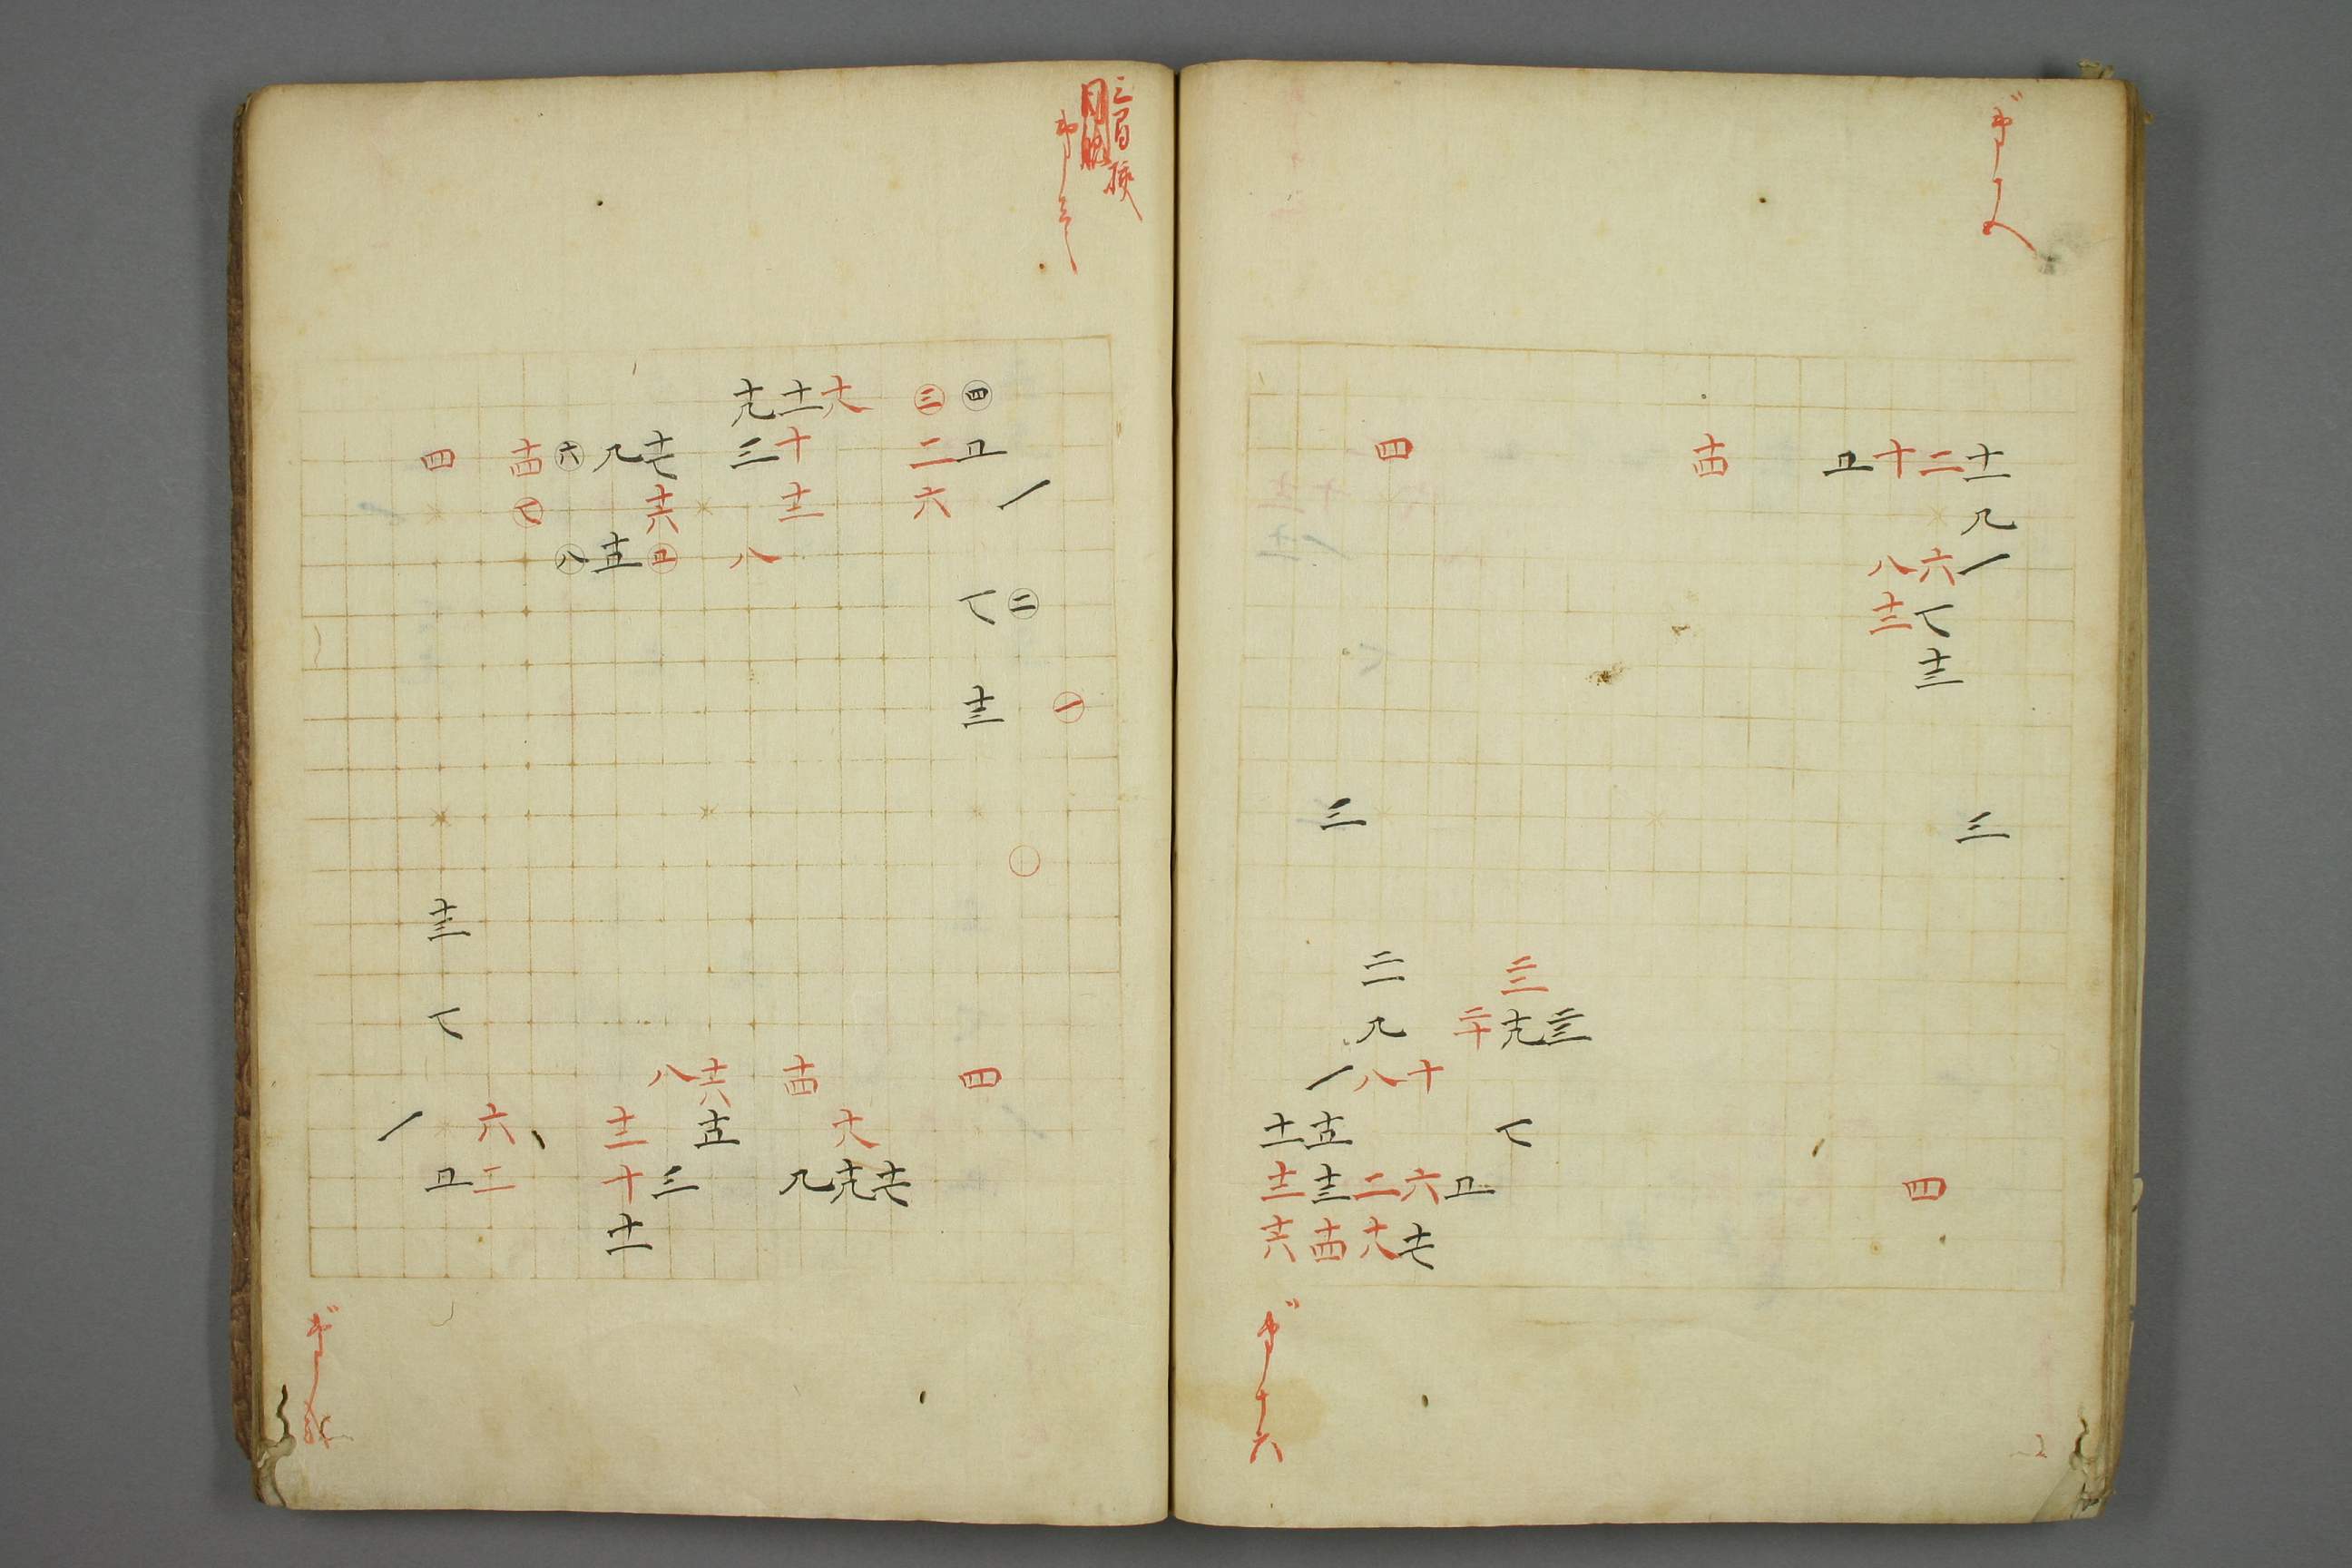 四 十四 五 十 二 十一
九
八 六 一
十二 七
十三
三 三
二一 二二
九 二十 十九 二三
一 八 十
十一 十五 七
十二 十三 二 六 五 四
十六 十四 十八 十七
第十六
十九 十一 十八 三 四
四 十四 六 九 十七 三 十 二 五
七 十六 十二 六 一
八 十五 五 八
七 二
十三 一
十三
七
八 十六 十四 四
一 六 十二 十五 十八
五 二 十 三 九 十九 十七
十一